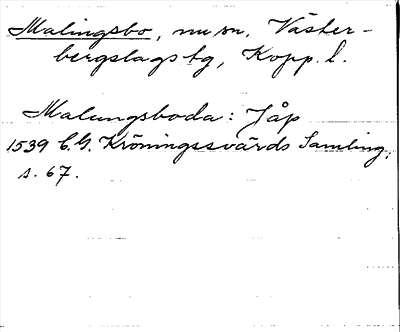 Malingsbo, nu sn, Väster-
bergslags tg, Kopp. l.
Malungsboda: Jåp
1539 C.G. Kröningssvärds Samling,
s. 67.